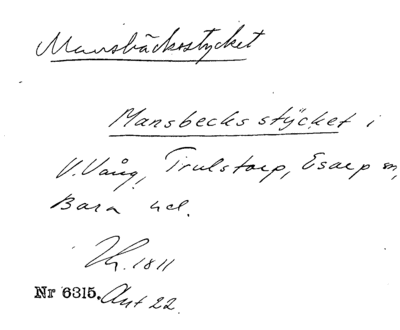 Mansbäcksstycket
Mansbecks stÿcket i
V. Vång, Trulstorp, Esarp sn,
Bara hd.
Lh. 1811
Nr 6315. Akt 22.